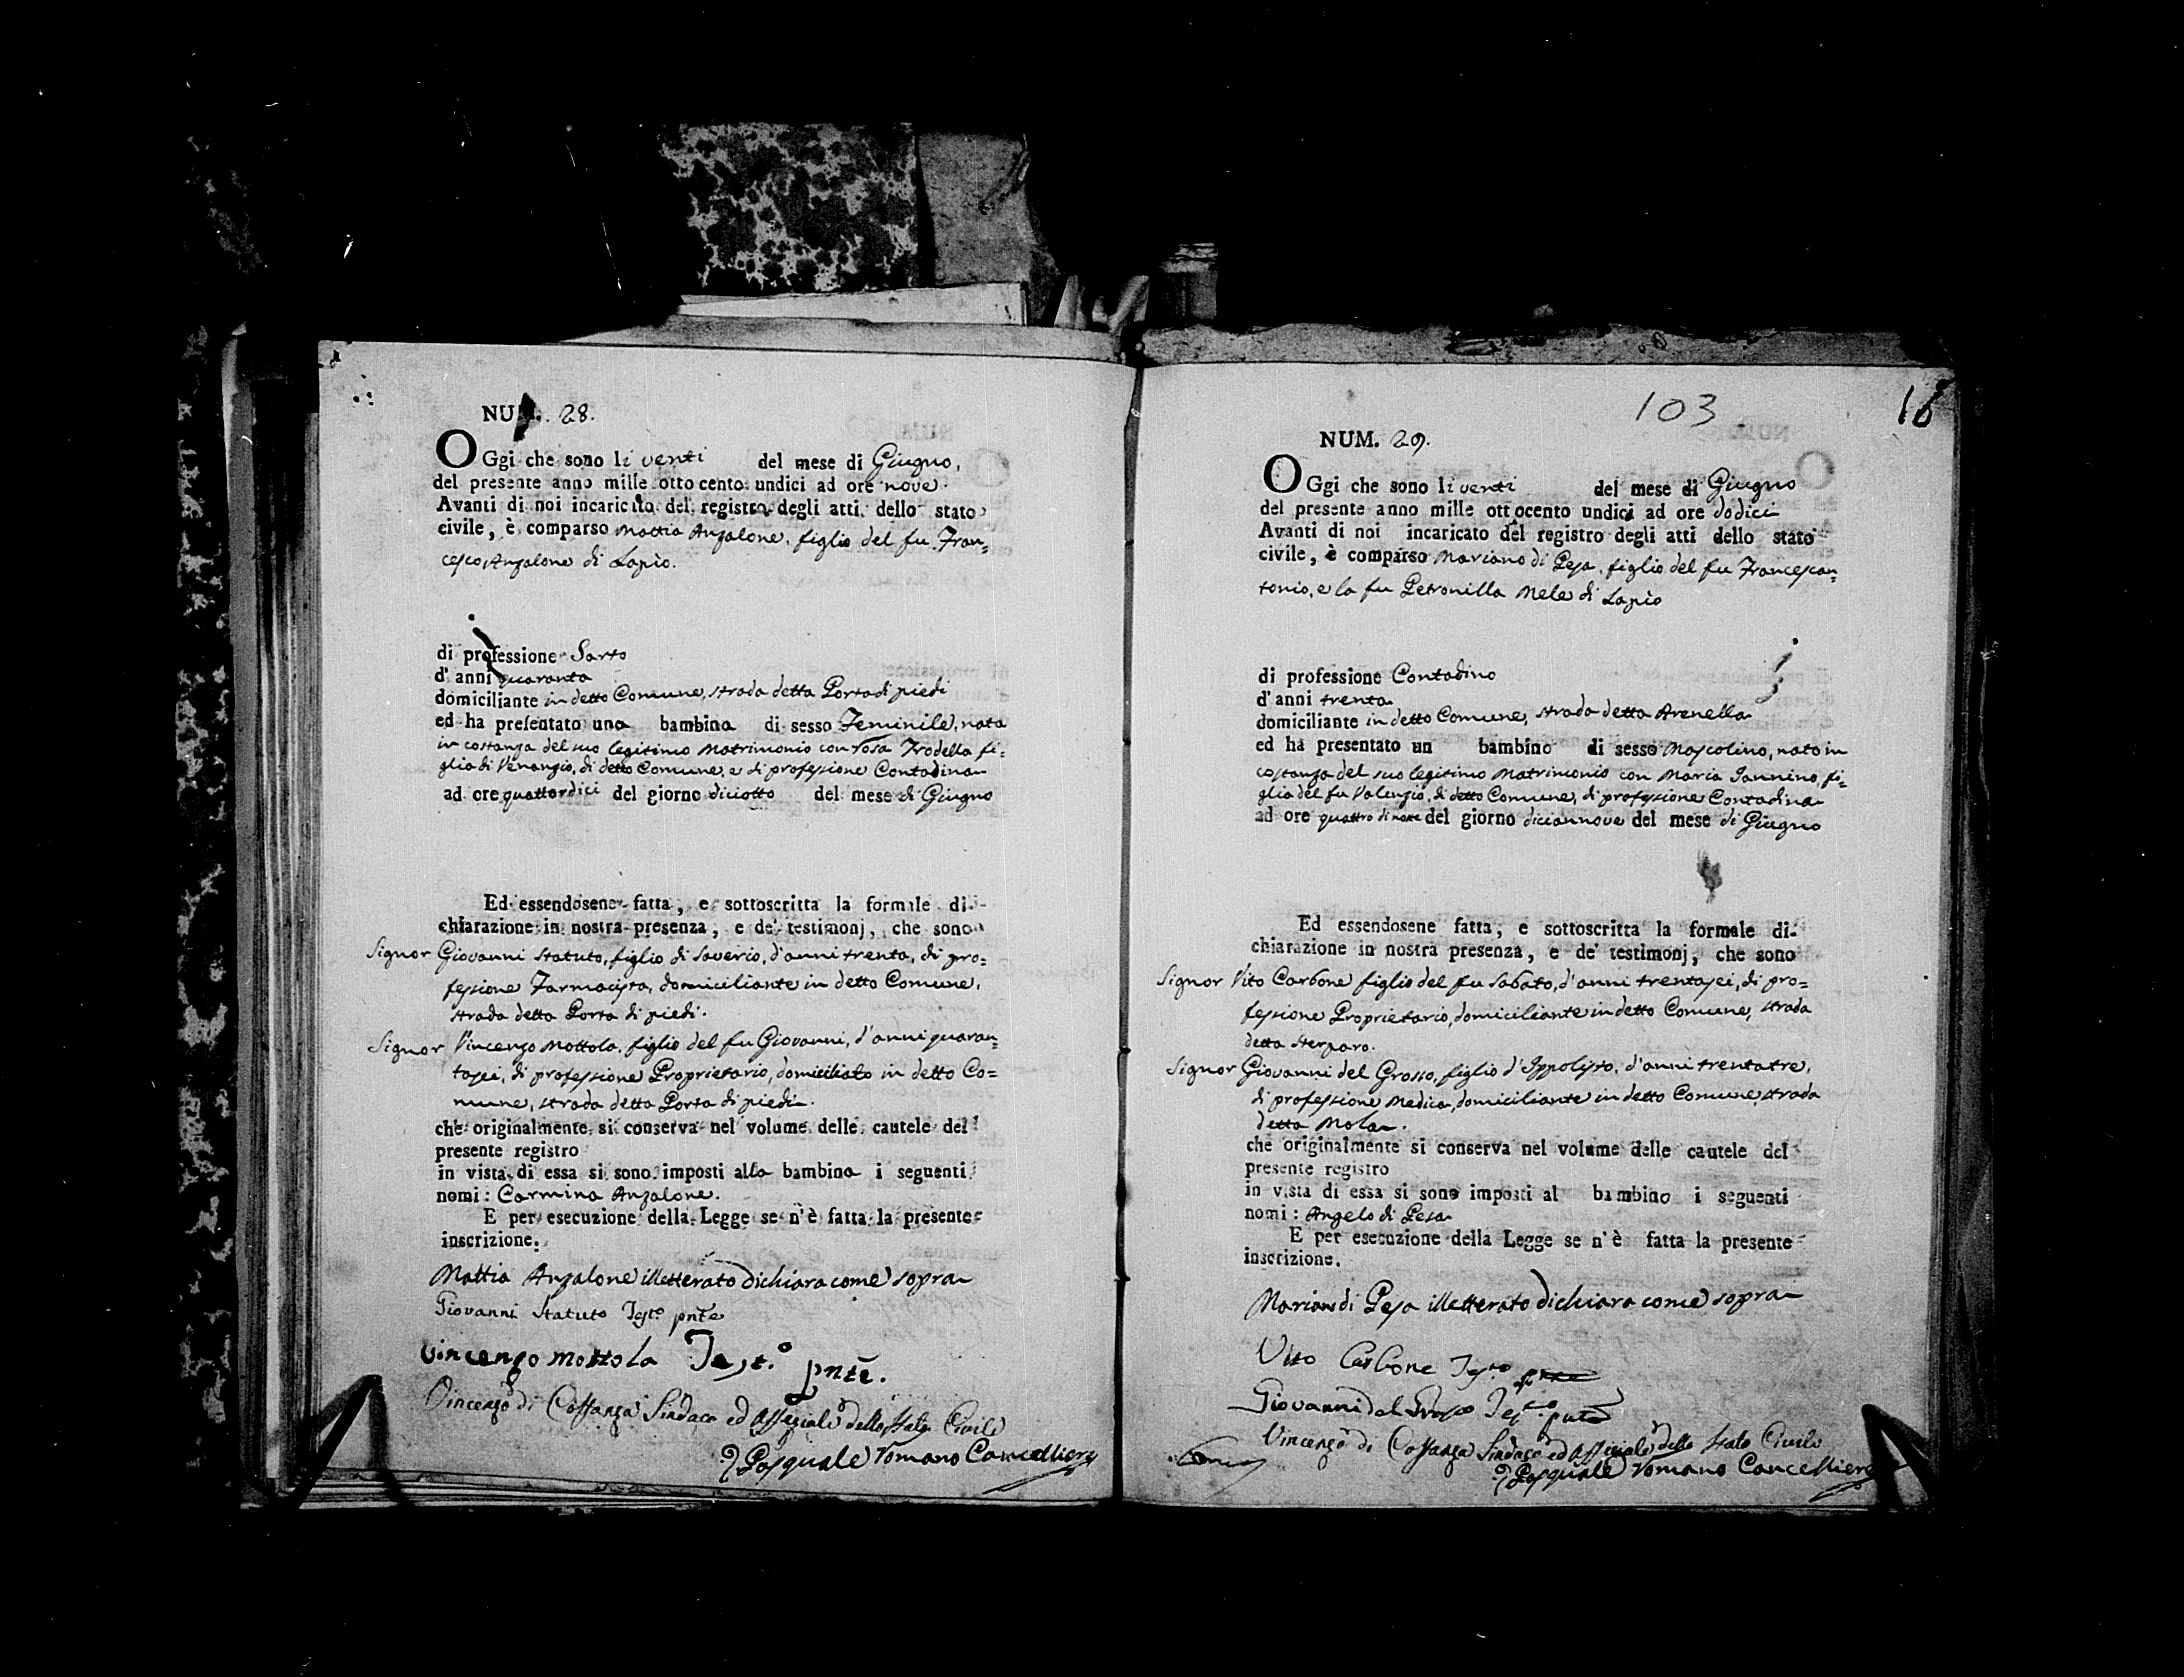 NUM. 28.
OGgi che sono li venti del mese di Giugno,
del presente anno mille otto cento undici ad ore nove.
Avanti di noi incaricato del registro degli atti dello stato
civile, è comparso Mattia Anzalone, figlio del fu Fran=
cesco Anzalone di Lapio.
di professione Sarto
d'anni quaranta
domiciliante in detto Comune, strada detta Porta di piedi
ed ha presentato una bambina di sesso Feminile, nata
in costanza del suo legitimo Matrimonio con Rosa Trodella fi=
glia di Venanzio, di detto Comune, e di professione Contadina
ad ore quattordici del giorno diciotto del mese di Giugno
Ed essendosene fatta, e sottoscritta la formale di-
chiarazione in nostra presenza, e de' testimonj, che sono
Signor Giovanni Statuto, figlio di Saverio, d'anni trenta, di pro=
fessione Farmacista, domiciliante in detto Comune,
strada detta Porta di piedi.
Signor Vincenzo Mottola, figlio del fu Giovanni, d'anni quaran=
tasei, di professione Proprietario, domiciliato in detto Co=
mune, strada detta Porta di piedi.
che originalmente si conserva nel volume delle cautele del
presente registro
in vista di essa si sono imposti alla bambina i seguenti
nomi: Carmina Anzalone.
E per esecuzione della Legge se n'è fatta la presente
inscrizione.
Mattia Anzalone illetterato dichiara come sopra
Giovanni Statuto Testo pnte
Vincenzo Mottola Test.o pnte.
Vincenzo di Costanza Sindaco ed Offiziale dello Stato Civile
Pasquale Romano Cancelliere
103
16
NUM. 29.
OGgi che sono li venti del mese di Giugno
del presente anno mille ottocento undici ad ore dodici
Avanti di noi incaricato del registro degli atti dello stato
civile, è comparso Mariano di Pesa, figlio del fu Francescan=
tonio, e la fu Petronilla Mele di Lapio
di professione Contadino
d'anni trenta
domiciliante in detto Comune, strada detta Arenella
ed ha presentato un bambino di sesso Mascolino, nato in
costanza del suo legitimo Matrimonio con Maria Iannino, fi=
glia del fu Valenzio, di detto Comune, di professione Contadina
ad ore quattro di notte del giorno diciannove del mese di Giugno
Ed essendosene fatta, e sottoscritta la formale di-
chiarazione in nostra presenza, e de' testimonj, che sono
Signor Vito Carbone figlio del fu Sabato, d'anni trentasei, di pro=
fessione Proprietario, domiciliante in detto Comune, strada
detta Sterparo.
Signor Giovanni del Grosso, figlio d'Ippolisto, d'anni trentatre,
di professione Medico, domiciliante in detto Comune, strada
detta Mola.
che originalmente si conserva nel volume delle cautele del
presente registro
in vista di essa si sono imposti al bambino i seguenti
nomi: Angelo di Pesa
E per esecuzione della Legge se n'è fatta la presente
inscrizione.
Mariano di Pesa illetterato dichiara come sopra
Vito Carbone Testo pnte
Giovanni del Grosso Testo pnte
Vincenzo di Costanza Sindaco ed Offiziale dello Stato Civile
Pasquale Romano Cancelliere